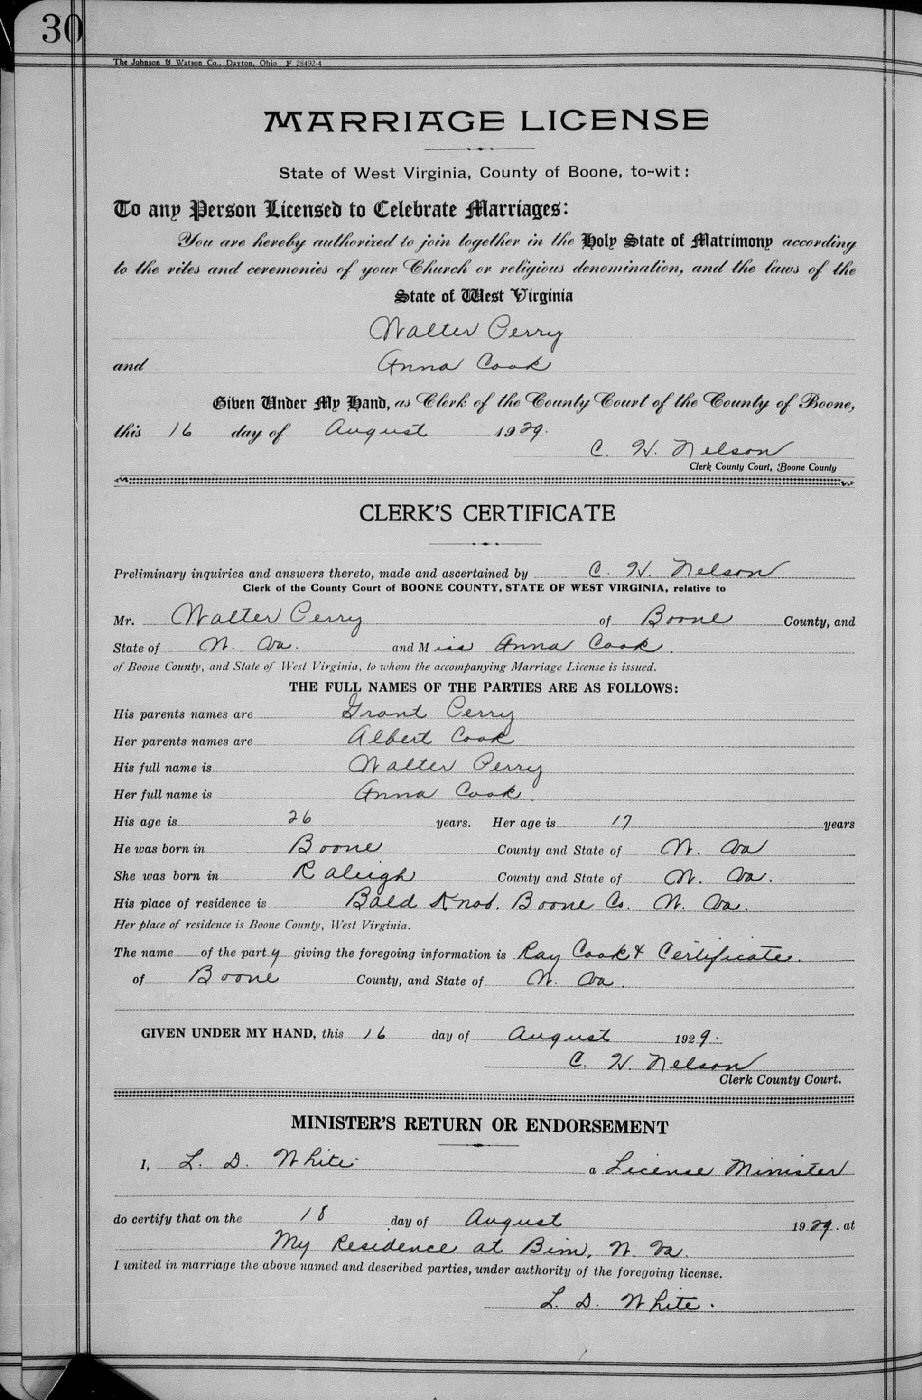 30
The Johnson & Watson Co., Dayton, Ohio F 28492-4
MARRIAGE LICENSE
State of West Virginia, County of Boone, to-wit:
To any Person Licensed to Celebrate Marriages:
You are hereby authorized to join together in the Holy State of Matrimony according
to the rites and ceremonies of your Church or religious denomination, and the laws of the
State of West Virginia
Walter Perry
and Anna Cook
Given Under My Hand, as Clerk of the County Court of the County of Boone,
this 16 day of August 1929.
C. H. Nelson
Clerk County Court, Boone County
CLERK'S CERTIFICATE
Preliminary inquiries and answers thereto, made and ascertained by C. H. Nelson
Clerk of the County Court of BOONE COUNTY, STATE OF WEST VIRGINIA, relative to
Mr. Walter Perry of Boone County, and
State of W. Va. and Miss Anna Cook.
of Boone County, and State of West Virginia, to whom the accompanying Marriage License is issued.
THE FULL NAMES OF THE PARTIES ARE AS FOLLOWS:
His parents names are Grant Perry
Her parents names are Albert Cook
His full name is Walter Perry
Her full name is Anna Cook.
His age is 26 years. Her age is 17 years
He was born in Boone County and State of W. Va
She was born in Raleigh County and State of W. Va.
His place of residence is Bald Knob. Boone Co. W. Va.
Her place of residence is Boone County, West Virginia.
The name of the party giving the foregoing information is Ray Cook & Certificate.
of Boone County, and State of W. Va.
GIVEN UNDER MY HAND, this 16 day of August 1929.
C. H. Nelson
Clerk County Court.
MINISTER'S RETURN OR ENDORSEMENT
I, L. D. White a License Minister
do certify that on the 18 day of August 1929. at
My Residence at Bim, W. Va.
I united in marriage the above named and described parties, under authority of the foregoing license.
L. D. White.